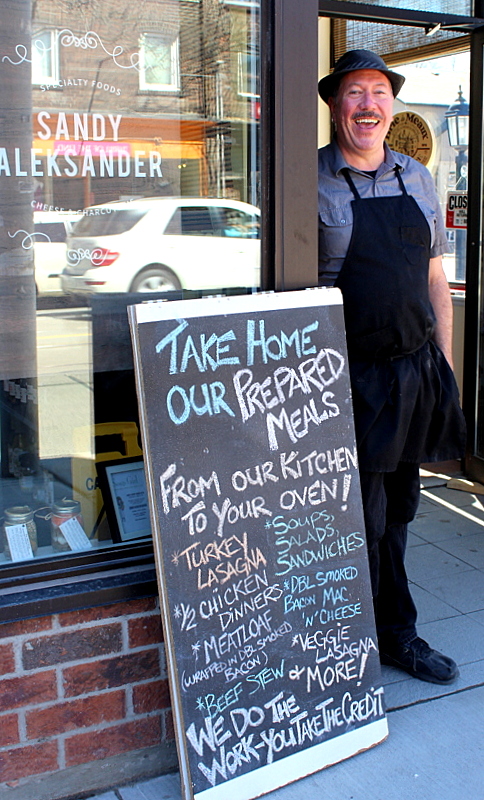 SPECIALTY FOODS
SANDY
ALEKSANDER
CHEESE & CHARCUT
CLOS
TAKE HOME
OUR PREPARED
MEALS
FROM OUR KITCHEN
TO YOUR OVEN!
*TURKEY
LASAGNA
*½ CHICKEN
DINNERS
*MEATLOAF
(WRAPPED IN DBL SMOKED
BACON)
*BEEF STEW
*SOUPS,
SALADS,
SANDWICHES
*DBL SMOKED
BACON MAC
'N' CHEESE
*VEGGIE
LASAGNA
& MORE!
WE DO THE
WORK-YOU TAKE THE CREDIT